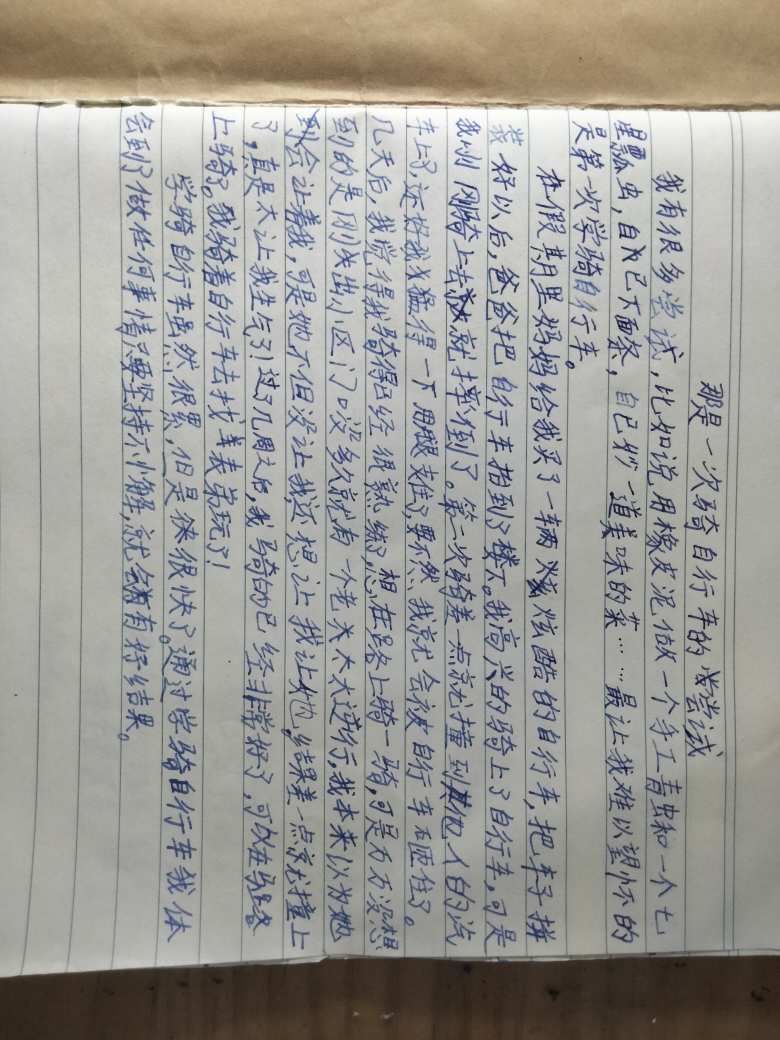 那是一次骑自行车的尝试
我有很多尝试,比如说用橡皮泥做一个手工青虫和一个七
星瓢虫,自己下面条,自己炒一道美味的菜……最让我难以望怀的
是第一次学骑自行车。
在假期里妈妈给我买了一辆炫酷的自行车,把车子拼
装好以后,爸爸把自行车抬到了楼下。我高兴的骑上了自行车,可是
我刚刚骑上去就摔倒了。第二次骑差一点就撞到其他人的汽
车上了,还好我猛得一下用腿支住了,要不然我就会被自行车压住了。
几天后,我觉得我骑得已经很熟练了,想在路上骑一骑,可是万万没想
到的是刚出小区门口没多久就有一个老太太逆行,我本来以为她
到会让着我,可是她不但没让我还想让我让她,结果差一点就撞上
了,真是太让我生气了!过了几周之后,我骑的已经非常好了,可以在马路
上骑了。我骑着自行车去找表弟玩了!
学骑自行车虽然很累,但是我很快了。通过学骑自行车我体
会到了做任何事情只要坚持不懈,就会有好结果。